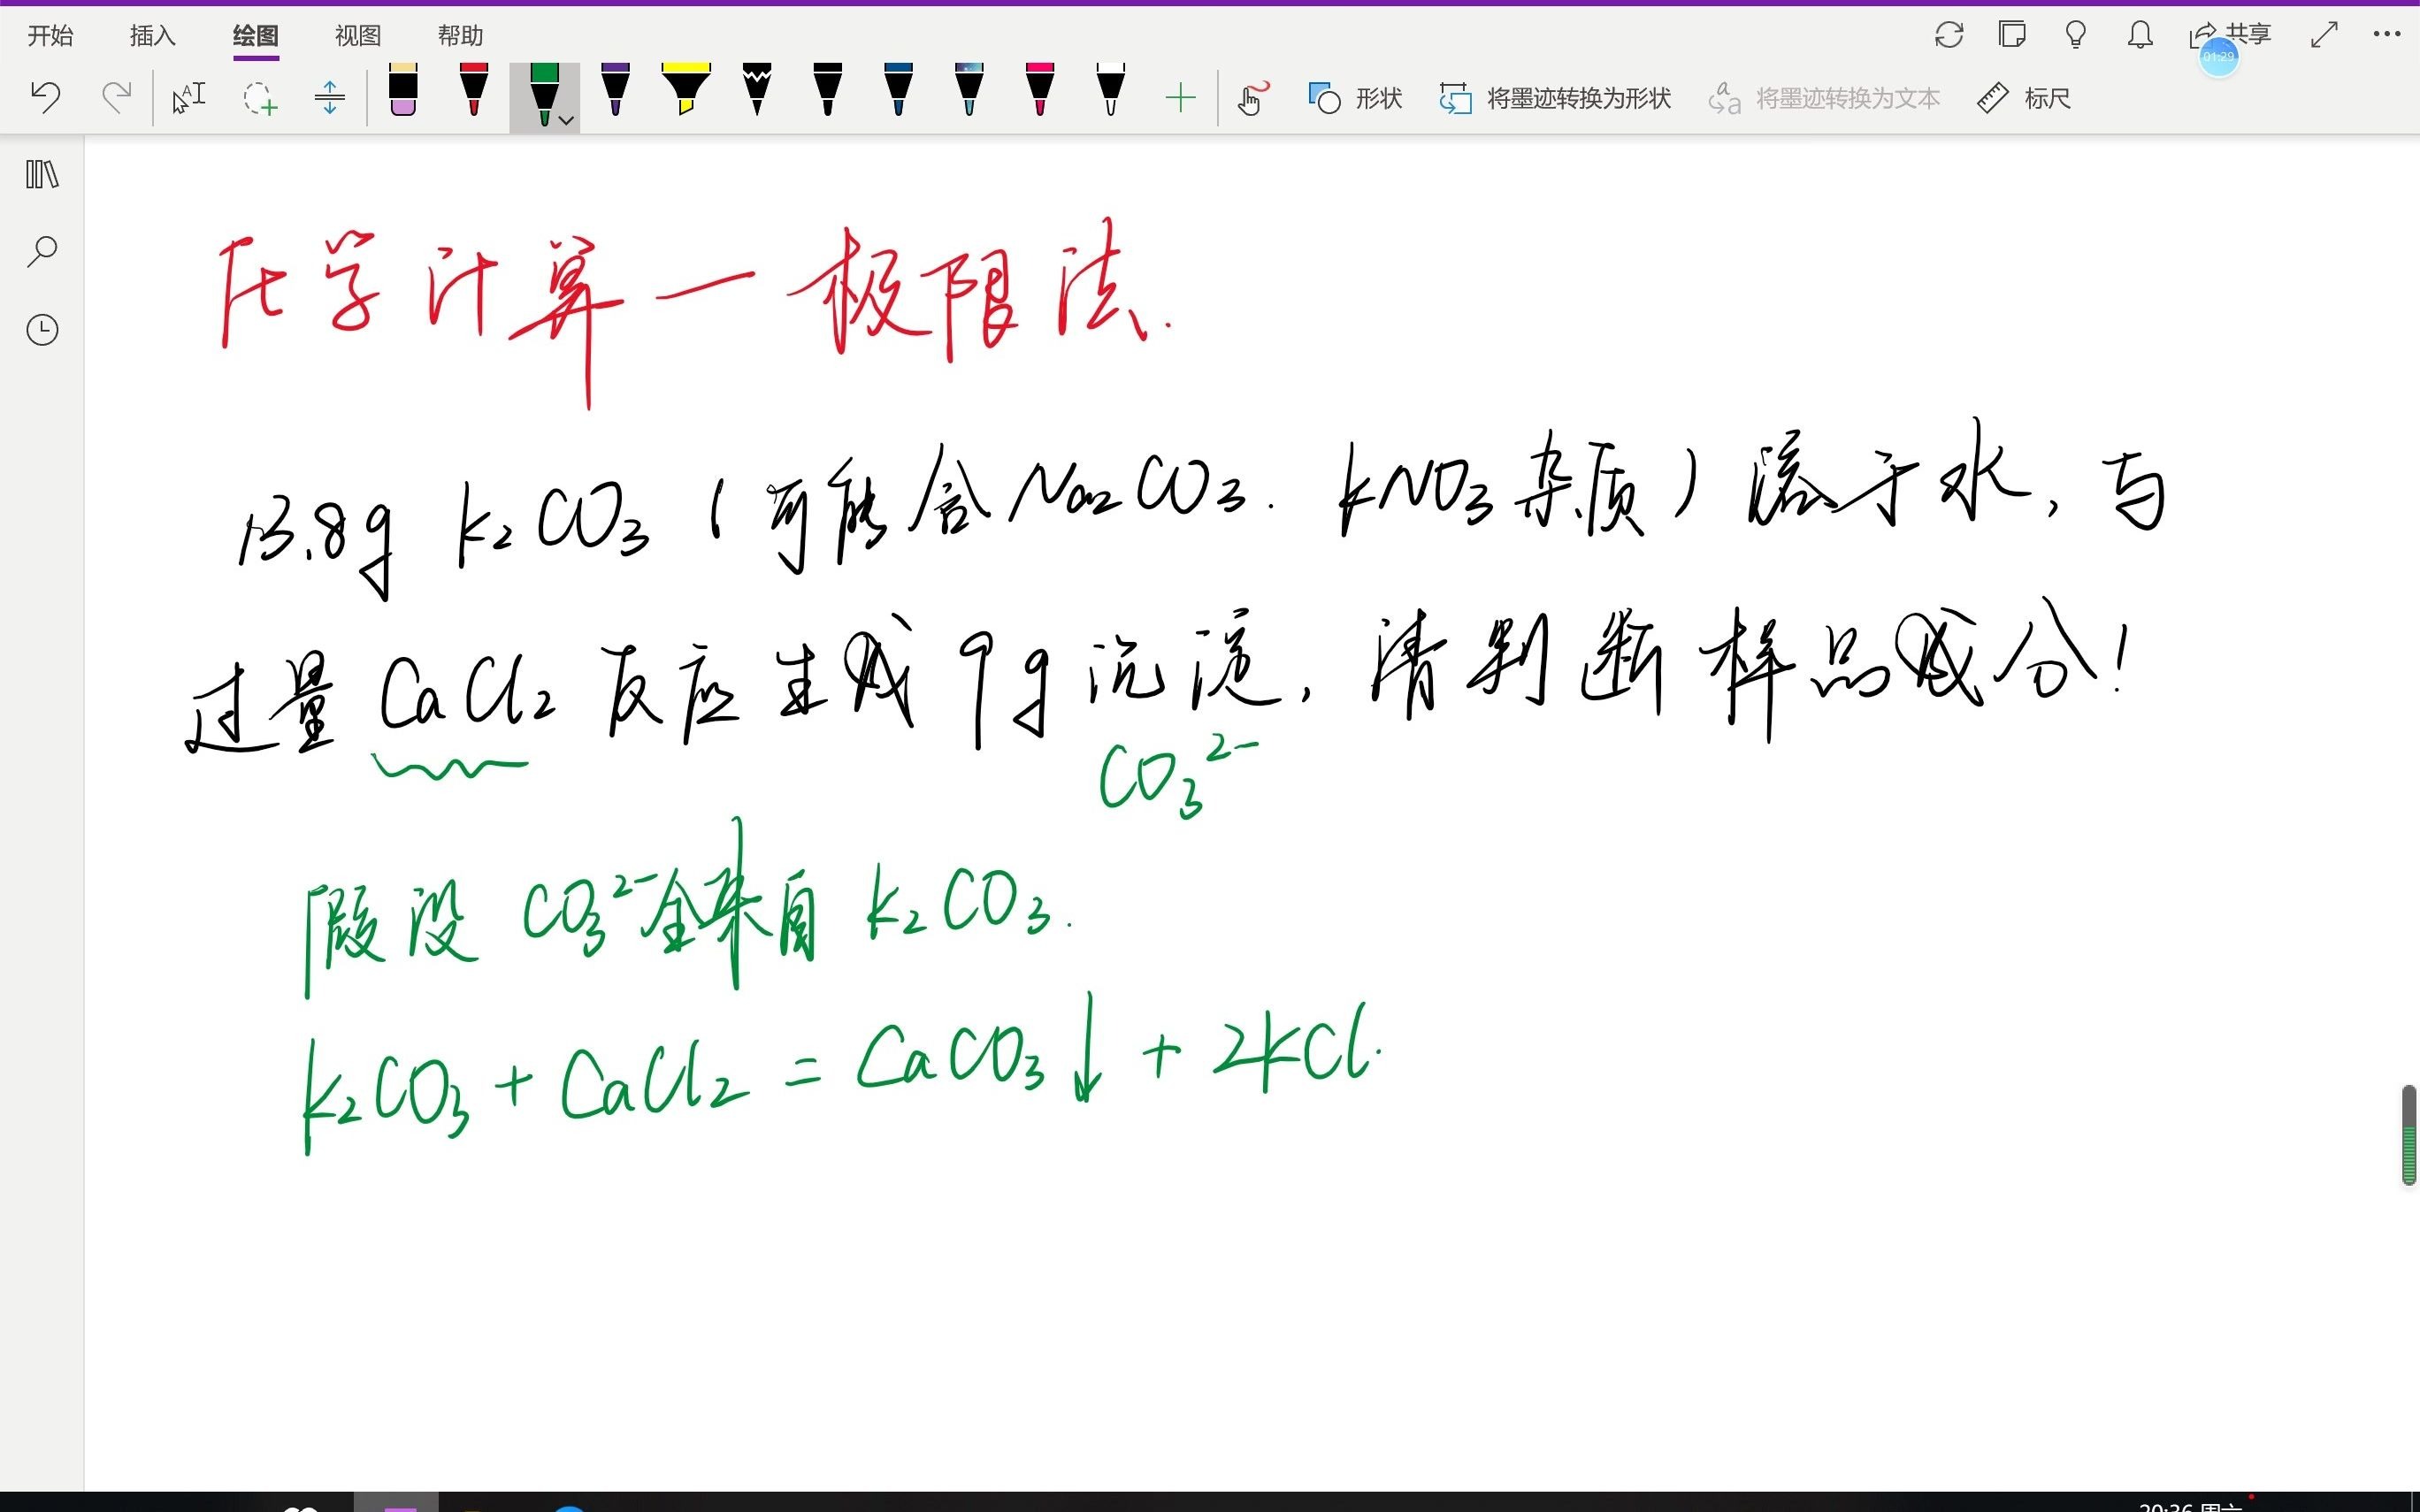 开始 插入 绘图 视图 帮助 共享
01:29
形状 将墨迹转换为形状 将墨迹转换为文本 标尺
化学计算一极限法.
13.8g K₂CO₃(可能含Na₂CO₃. KNO₃杂质)溶于水,与
过量 CaCl₂ 反应生成 9g 沉淀,请判断样品成分!
CO₃²⁻
假设 CO₃²⁻全来自 K₂CO₃.
K₂CO₃ + CaCl₂ = CaCO₃↓ + 2KCl.
20:36 周六